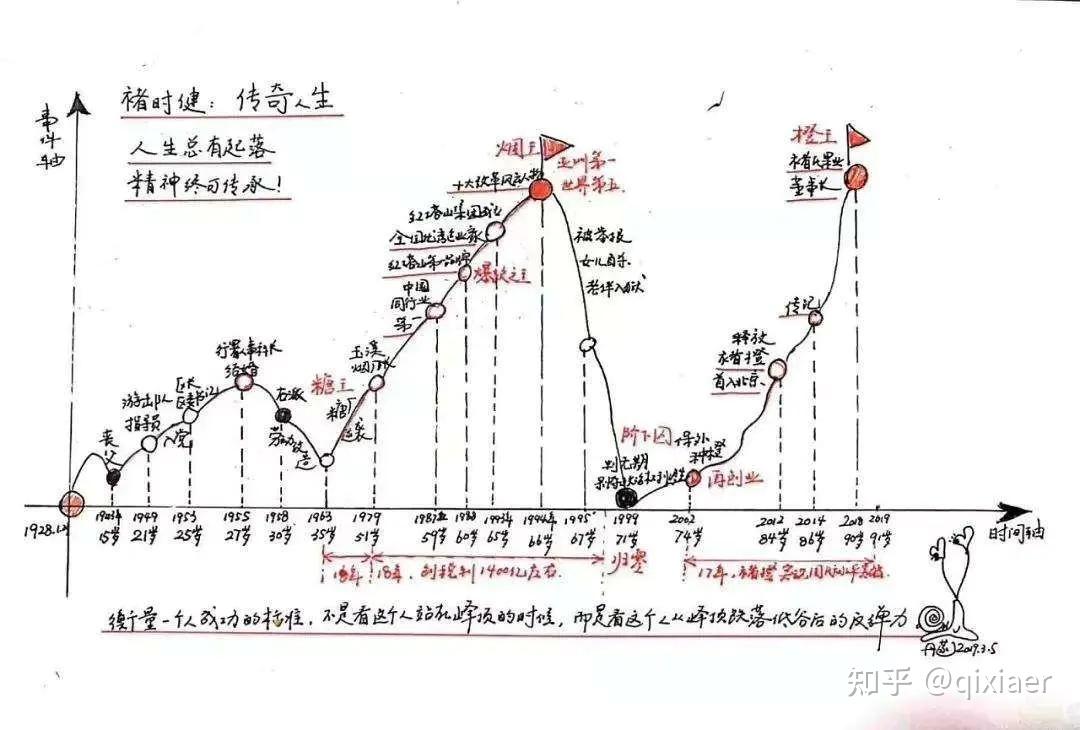 事件轴
褚时健：传奇人生
人生总有起落
精神终可传承！
烟王
亚洲第一
世界第五
十大改革风云人物
红塔山集团
全国
红塔山第一品牌
中国
同行业
第一
玉溪
烟厂厂长
糖王
糖厂
行署
结婚
右派
劳动改造
区长
区委书记
入党
游击队
指导员
丧父
被举报
女儿自杀
老伴入狱
阶下囚
判无期
保外
种橙
再创业
释放
褚橙
首入北京
传记
橙王
褚氏果业
董事长
1928.1
15岁
1949
21岁
1953
25岁
1955
27岁
1958
30岁
1963
35岁
1979
51岁
59岁
60岁
65岁
1994年
66岁
1995
67岁
1999
71岁
2002
74岁
2012
84岁
2014
86岁
2018
90岁
2019
91岁
时间轴
18年，创税利1400亿左右
归零
17年，褚橙
衡量一个人成功的标准，不是看这个人站在峰顶的时候，而是看这个人从峰顶跌落低谷后的反弹力
2019.3.5
知乎 @qixiaer